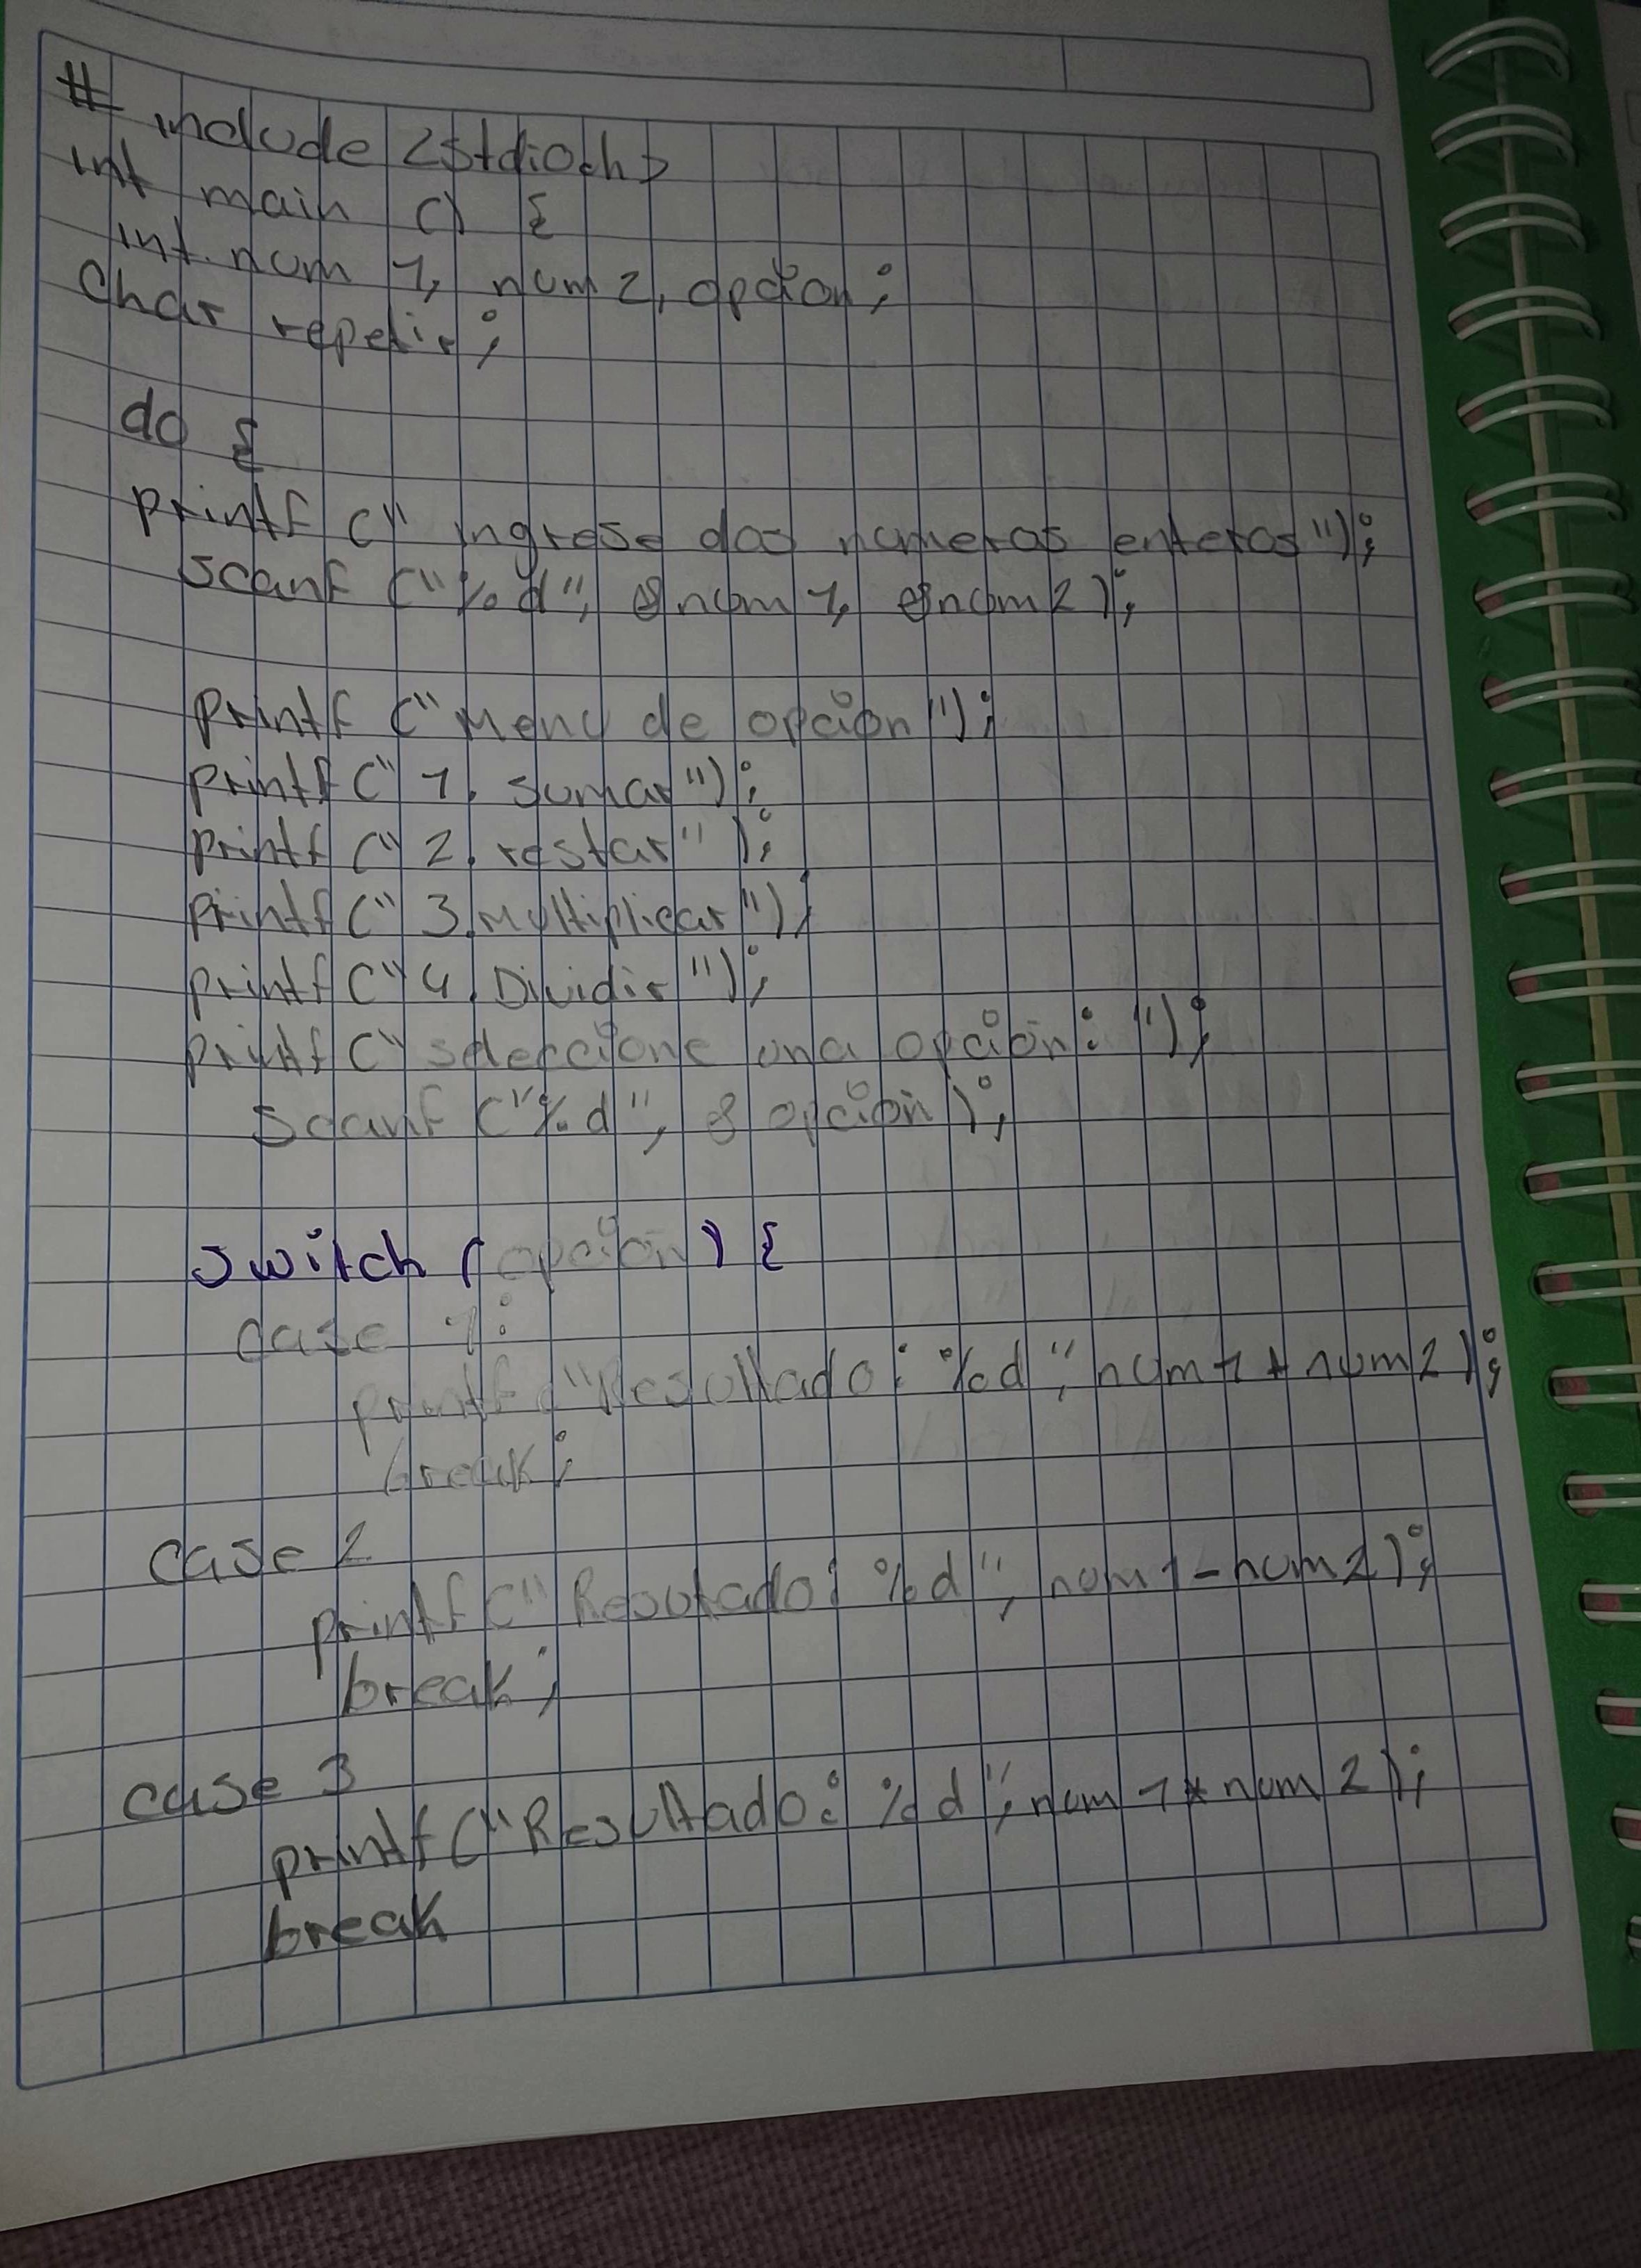 # include <stdio.h>
int main () {
int num 1, num 2, opcion;
Char repetir;
do {
printf (" ingrese dos numeros enteros");
scanf ("%d", &num 1, &num 2);
printf (" Menu de opcion");
printf (" 1. sumar");
printf (" 2. restar" );
printf (" 3. Multiplicar");
printf (" 4. Dividir");
printf (" seleccione una opcion: ");
scanf ("%d", & opcion);
switch (opcion) {
case 1:
printf ("Resultado: %d", num 1 + num 2);
break;
case 2
printf (" Resultado: %d", num 1 - num 2);
break;
case 3
printf ("Resultado: %d", num 1 * num 2);
break